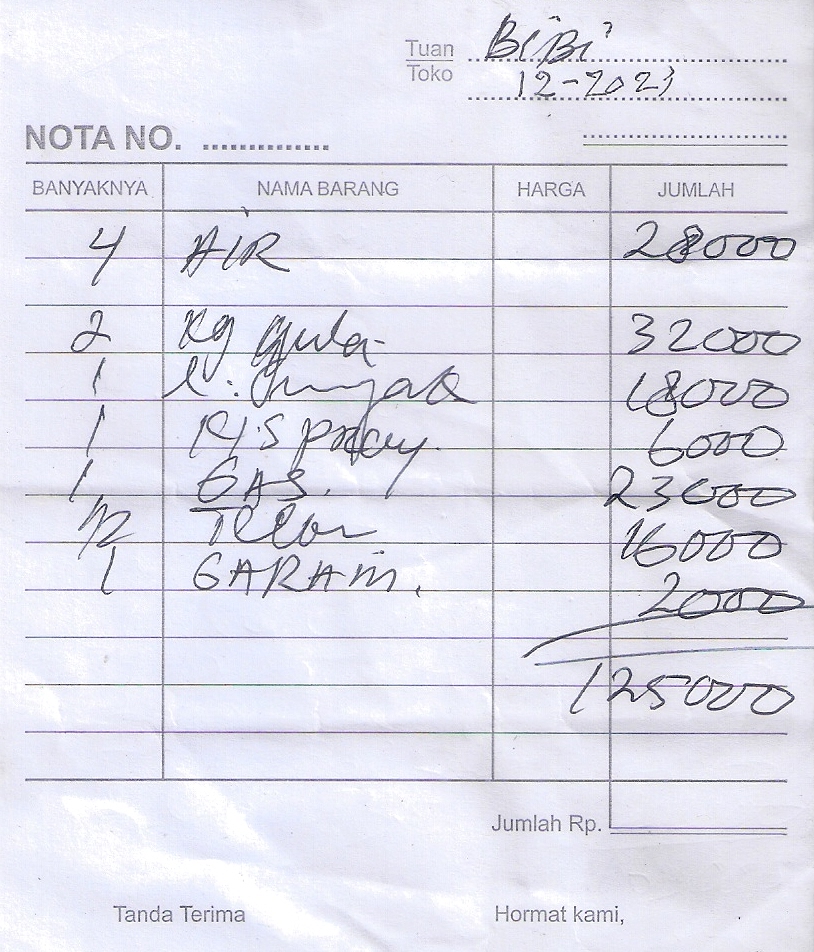 Tuan BiBi
Toko 12-2023
NOTA NO. ..............
BANYAKNYA NAMA BARANG HARGA JUMLAH
4 AIR 28000
2 Kg gula 32000
1 18000
1 6000
1 GAS. 23000
1/2 Telor 16000
1 GARAM. 2000
125000
Jumlah Rp.
Tanda Terima Hormat kami,